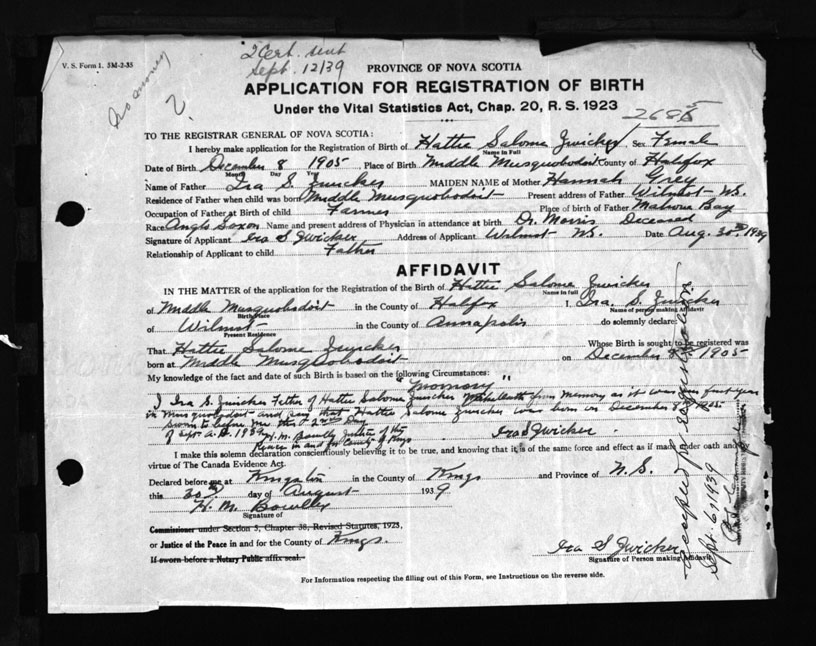 V. S. Form 1. 5M-2-35
no money
2 Cert. sent
Sept. 12/39
PROVINCE OF NOVA SCOTIA
APPLICATION FOR REGISTRATION OF BIRTH
Under the Vital Statistics Act, Chap. 20, R. S. 1923
TO THE REGISTRAR GENERAL OF NOVA SCOTIA:
I hereby make application for the Registration of Birth of Hattie Salome Zwicker Sex Female
Name in Full
Date of Birth December 8 1905 Place of Birth Middle Musquobodoit County of Halifax
Month Day Year
Name of Father Ira S. Zwicker MAIDEN NAME of Mother Hannah Grey
Residence of Father when child was born Middle Musquobodoit Present address of Father Wilmot NS.
Occupation of Father at Birth of child Farmer Place of birth of Father Mahone Bay
Race Anglo Saxon Name and present address of Physician in attendance at birth Dr. Morris Deceased
Signature of Applicant Ira S Zwicker Address of Applicant Wilmot NS. Date Aug. 30th 1939
Relationship of Applicant to child Father
AFFIDAVIT
IN THE MATTER of the application for the Registration of the Birth of Hattie Salome Zwicker
Name in full
of Middle Musquobodoit in the County of Halifax I, Ira S. Zwicker
Birth Place Name of person making Affidavit
of Wilmot in the County of Annapolis do solemnly declare:
Present Residence
That Hattie Salome Zwicker Whose Birth is sought to be registered was
born at Middle Musquobodoit on December 8 1905
My knowledge of the fact and date of such Birth is based on the following Circumstances:
"Memory"
I Ira S. Zwicker Father of Hattie Salome Zwicker from memory as it was year
in Musquobodoit and say that Hattie Salome Zwicker was born on December 8 1905
Sworn to before me this 2nd Day
of Sept A.D. 1939 Ira S Zwicker
H. M. Bowlby Justice of the
Peace in and for County of Kings
I make this solemn declaration conscientiously believing it to be true, and knowing that it is of the same force and effect as if made under oath and
virtue of The Canada Evidence Act.
Declared before me at Kingston in the County of Kings and Province of N. S.
this 30th day of August 1939
H. M. Bowlby
Signature of
Commissioner under Section 5, Chapter 38, Revised Statutes, 1923,
or Justice of the Peace in and for the County of Kings.
If sworn before a Notary Public affix seal.
Ira S Zwicker
Signature of Person making Affidavit
For Information respecting the filling out of this Form, see Instructions on the reverse side.
Accepted for registration
Sept. 6, 1939